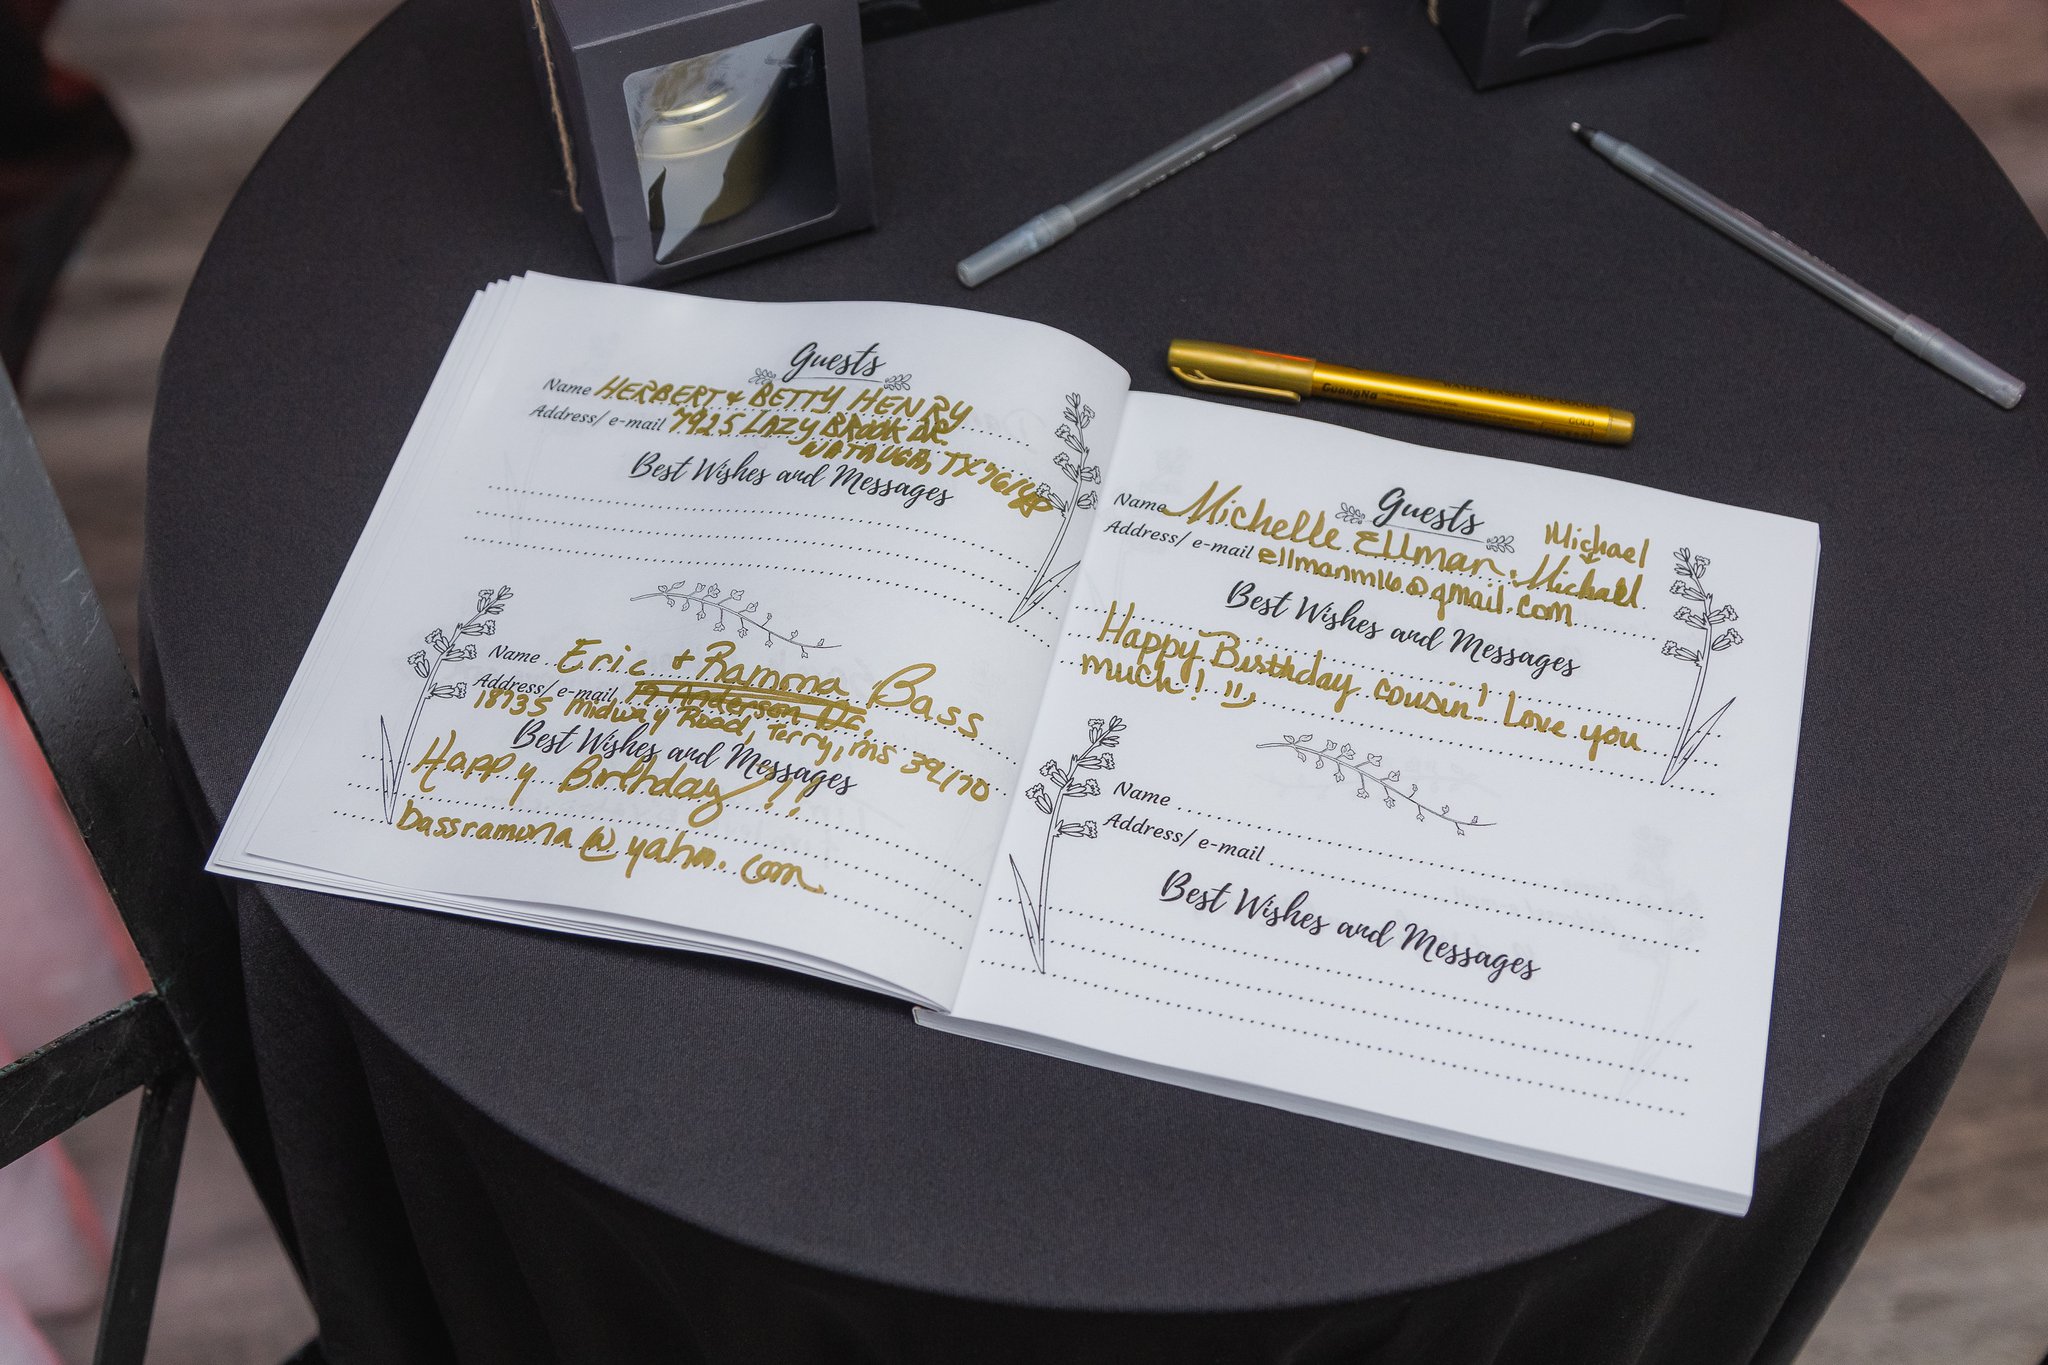 Guests
Name HERBERT & BETTY HENRY
Address/ e-mail 7925 LAZY BROOK DR.
WATAUGA, TX
Best Wishes and Messages
Name Eric + Ramona Bass
Address/ e-mail 19 Anderson Dr.
18735 Midway Road, Terry, ms 39170
Best Wishes and Messages
Happy Birthday!!
bassramona@yahoo.com
Guests
Name Michelle Ellman. Michael
Michael
Address/ e-mail ellmanm16@gmail.com
Best Wishes and Messages
Happy Birthday cousin! Love you
much! :)
Name
Address/ e-mail
Best Wishes and Messages
GuangNa
GOLD